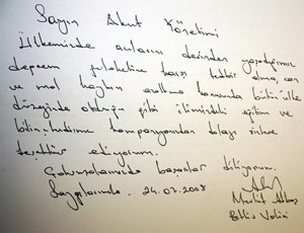 Sayın Akut Yönetimi
Ülkemizde acılarını derinden yaşadığımız
deprem felaketine karşı tedbir alma, can
ve mal kaybını azaltma konusunda bütün ülke
düzeyinde olduğu gibi ilimizdeki eğitim ve
bilinçlendirme kampanyanızdan dolayı sizlere
teşekkür ediyorum.
Çalışmalarınızda başarılar diliyorum.
Saygılarımla. 24.02.2008
Mevlüt
Bitlis Valisi